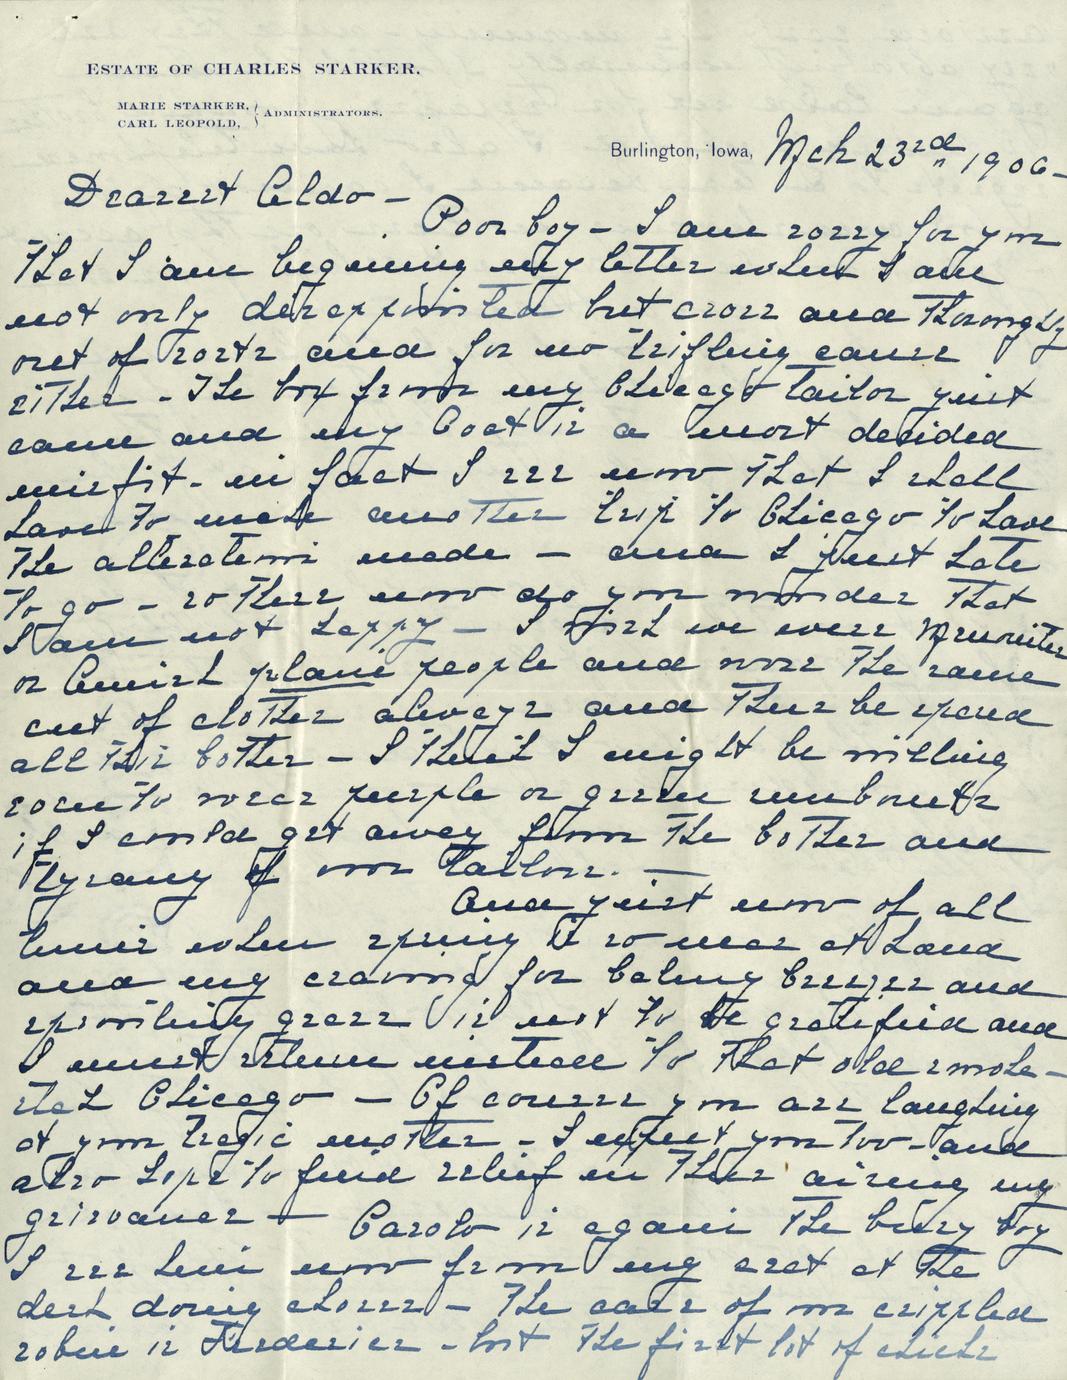 ESTATE OF CHARLES STARKER.
MARIE STARKER, } ADMINISTRATORS.
CARL LEOPOLD,
Burlington, Iowa, Mch 23rd 1906-
Dearest Aldo -
Poor boy - I am sorry for you
That I am begining my letter when I am
not only disappointed but cross and Thoroughly
out of sorts and for no trifling cause
either - The box from my Chicago Tailor just
came and my Coat is a most decided
misfit - in fact I see now That I shall
have To make another trip To Chicago To have
The alterations made - and I just hate
To go - so There now do you wonder That
I am not happy - I wish we were Mennites
or Amish plain people and wore The same
cut of clothes always and Thus be spared
all This bother - I Think I might be willing
soon To wear purple or green sunbonnets
if I could get away from The bother and
Tyrany of our Tailors. -
And just now of all
times when spring is so near at hand
and my craving for balmy breezes and
sprouting grass is not To be gratified and
I must return instead To That old smoke-
stack Chicago - Of course you are laughing
at your tragic mother - I expect you Too - and
also hope To find relief in Thus airing my
grievances - Carolo is again The busy boy
I see him now from my seat at The
desk doing chores - The care of our crippled
robin is Frederics - but The first lot of chicks